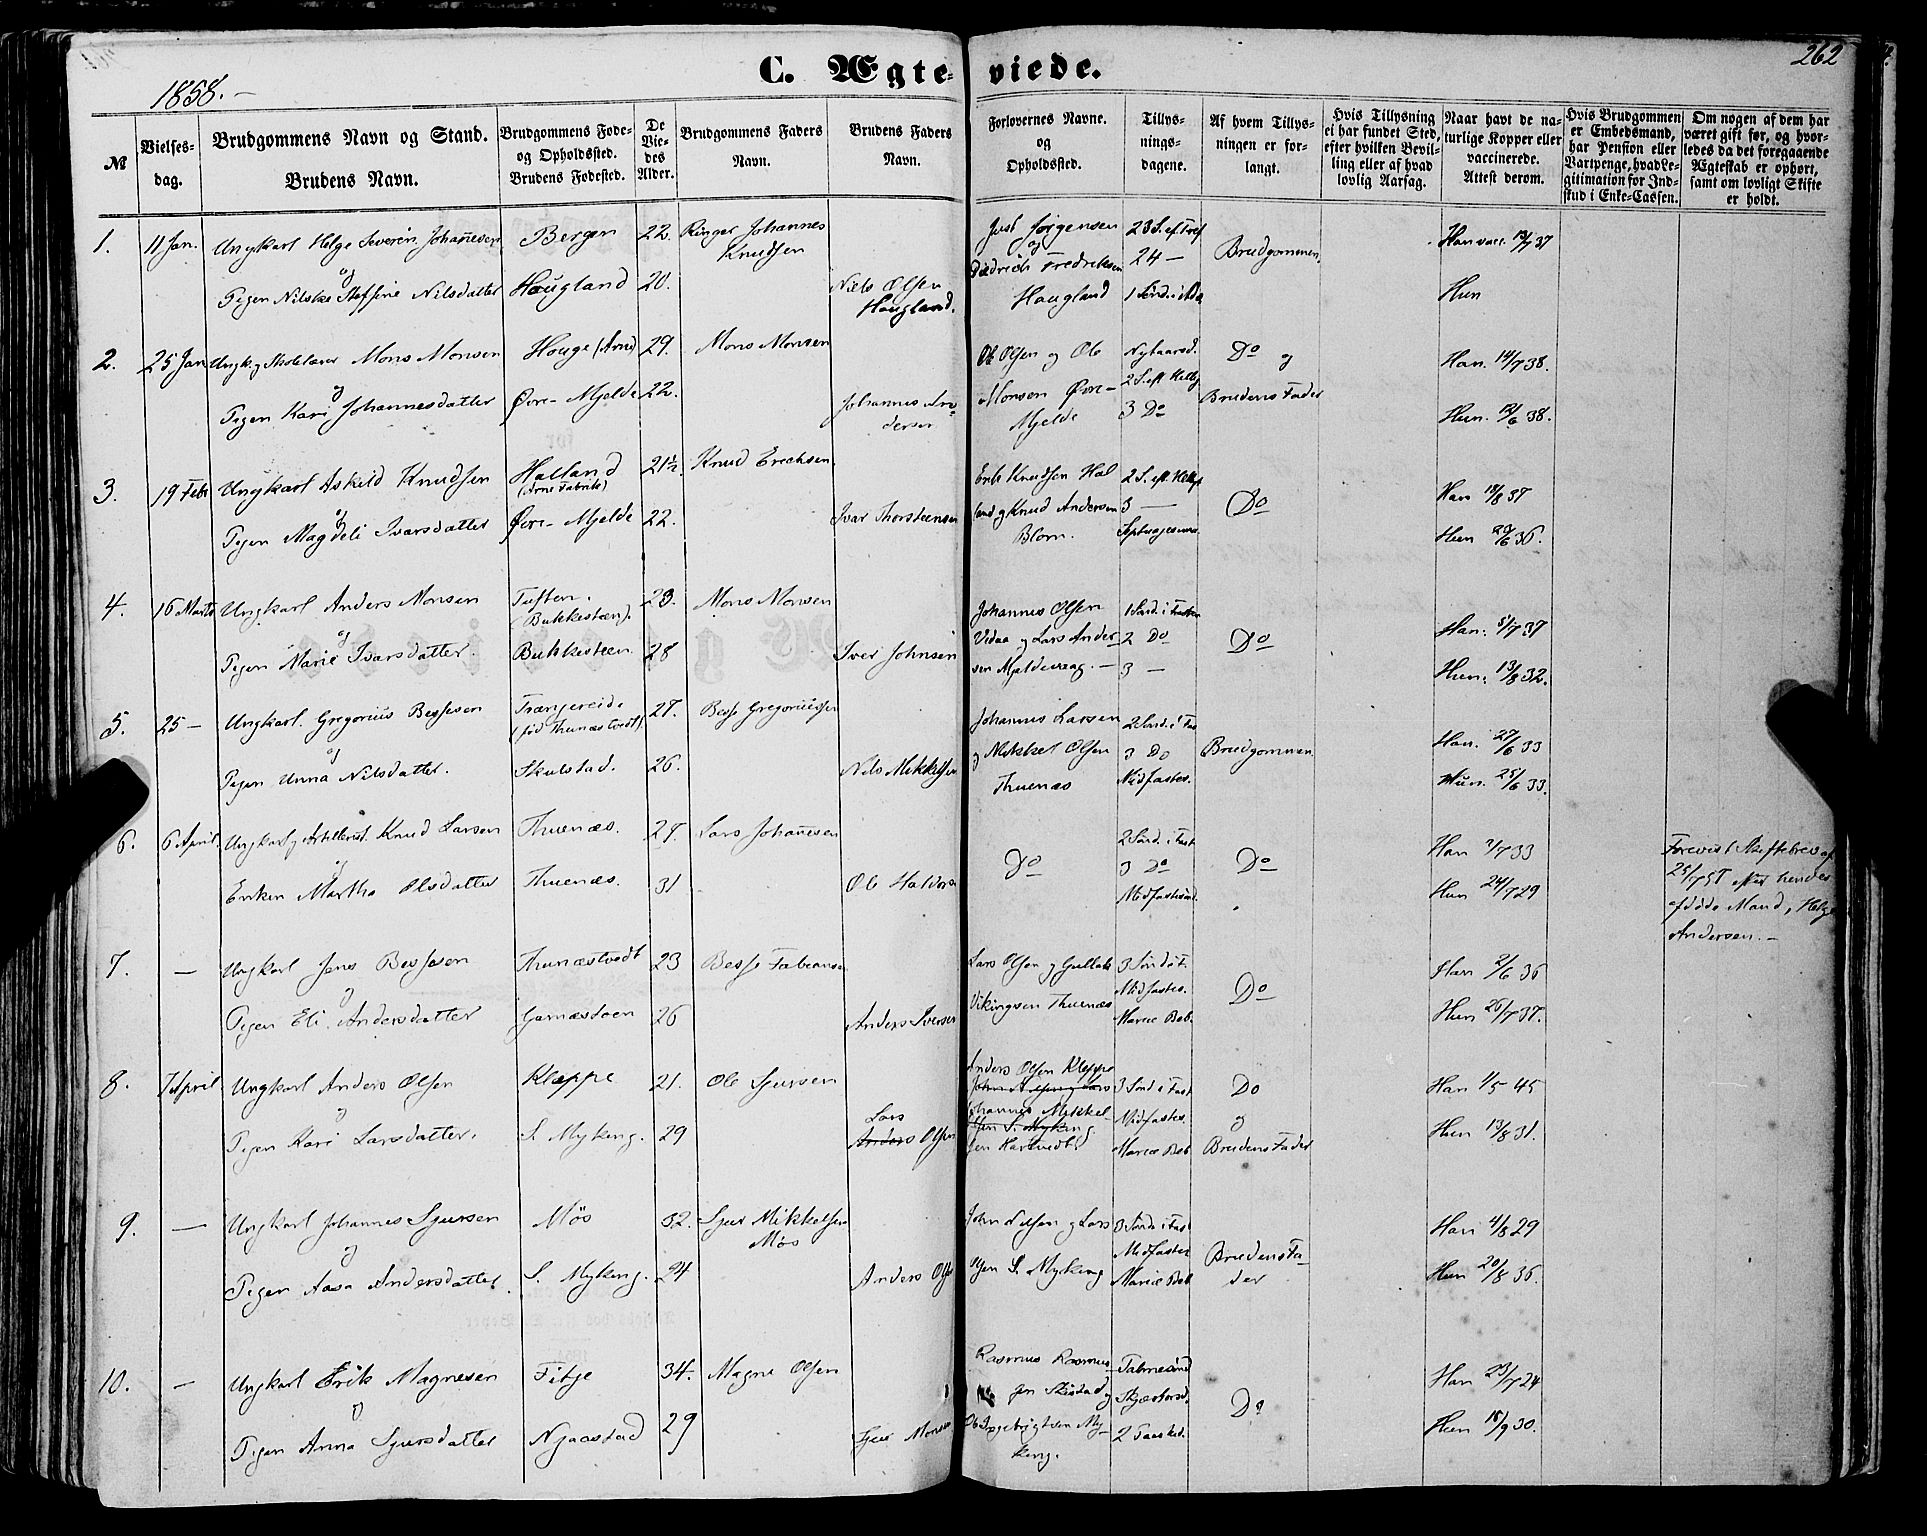 1858.-
C. Ægteviede.
262
№
Vielsesdag.
Brudgommens Navn og Stand.
Brudens Navn.
Brudgommens Fødeog Opholdssted.
Brudens Fødested.
De Viedes Alder.
Brudgommens Faders Navn.
Brudens Faders Navn.
Forlovernes Navne. og Opholdssted.
Tillysningsdagene.
Af hvem Tillysningen er forlangt.
Hvis Tillysning ei har fundet Sted, efter hvilken Bevilling eller af hvad lovlig Aarsag.
Naar havt de naturlige Kopper eller vaccinerede. Attest derom.
Hvis Brudgommen er Embedsmand, har Pension eller Vartpenge, hvad Legitimation for Indskud i Enke-Cassen.
Om nogen af dem har været gift før, og hvorledes da det foregaaende Ægteskab er ophørt, samt om lovligt Skifte er holdt.
1. 11 Jan. Ungkarl Helge Severin Johannesen Bergen 22. Ringer Johannes Knudsen
og
Pigen Nilske Steffine Nilsdatter Hougland 20. Niels Olsen Hougland.
Just Jørgensen og Diedrich Fredriksen Hougland
24 -
Brudgommen.
Han vacc. 13/7 37
Hun
2. 25 Jan Ungk. og Skolelærer Mons Monsen Houge (Arne) 29. Mons Monsen
og
Pigen Kari Johannesdatter Øvre-Mjelde 22. Johannes Andersen
Ole Olsen og Ole Monsen Øvre-Mjelde
Nytaarsd.
2 S. eft. Hellig
3 Do
Do og Brudens Fader
Han. 14/7 38.
Hun. 12/6 38.
3. 19 Febr Ungkarl Askild Knudsen Halland (Arne Fabrik) 21½ Knud Erichsen.
og
Pigen Magdeli Ivarsdatter Øvre-Mjelde 22. Ivar Thorsteensen
Erik Knudsen Halland og Knud Andersen Blom.
3 -
Septuagesima
Do
Han 18/8 37
Hun 29/6 36.
4. 16 Marts Ungkarl Anders Monsen Tuften. (Bukkesteen). 23. Mons Monsen
og
Pigen Marie Ivarsdatter. Bukkesteen 28 Iver Johnsen
Johannes Olsen Vidaa og Lars Andersen Mjeldevaag. -
1 Sønd. i Fasten
2 Do
3 -
Do
Han. 5/7 37
Hun. 13/8 32.
5. 25 - Ungkarl. Gregorius Bessesen Trængereide (fød Thunæstvedt) 27. Besse Gregoriussen
og
Pigen Unna Nilsdatter. Skulstad. 26. Nils Mikkelsen
Johannes Larsen og Mikkel Olsen Thuenæs
2 Sønd. i Fas
3 Do
Midfastes.
Brudgommen
Han. 27/6 33
Hun. 25/6 33.
6. 6 April. Ungkarl og Artillerist Knud Larsen Thuenæs. 27. Lars Johannesen
og
Enken Martha Olsdatter Thuenæs. 31 Ole Haldors
Do
2 Sønd. i Fast
3 Do
Midfastesønd.
Do
Han 2/7 33
Hun 24/7 29
Forevist Skiftebrev af 25/7 57 efter hendes afdøde Mand, Helge Andersen. -
7. - Ungkarl Jens Bessesen Thunæstvedt 23 Besse Fabianse
og
Pigen Eli Andersdatter Garnæstøen 26 Anders Iversen
Lars Olsen og Gullak Vikingsen Thuenæs
3 Sønd i F.
Midfastes.
Mariæ Beb.
Do
Han 2/6 36
Hun 26/7 37.
8. 7 April Ungkarl Anders Olsen Kleppe 21. Ole Sjursen
og
Pigen Kari Larsdatter. S. Myking. 29 Lars Olsen
Anders Olsen Kleppe
Johannes Mikkelsen Hartvedt.
3 Sønd i Fast
Midfastes.
Mariæ Beb
Do og Brudens Fader
Han 1/5 45
Hun 13/8 31.
9. - Ungkarl Johannes Sjursen Møs 32. Sjur Mikkelsen Møs
og
Pigen Aasa Andersdatter S. Myking. 24 Anders Ols
John Nilsen og Lars Olsen S. Myking
3 Sønd i Fast
Midfastes
Mariæ Beb
Brudens Fader
Han 4/8 29
Hun 20/8 36.
10. - Ungkarl Erik Magnesen Fitje 34. Magne Olsen
og
Pigen Anna Sjursdatter Njaastad 29 Sjur Monsen
Rasmus Rasmussen Skistad og Ole Ingebrigtsen Myking.
Palmesønd
Skjærtorsd.
2 Paaskd.
Do
Han 23/7 24
Hun 18/9 30.